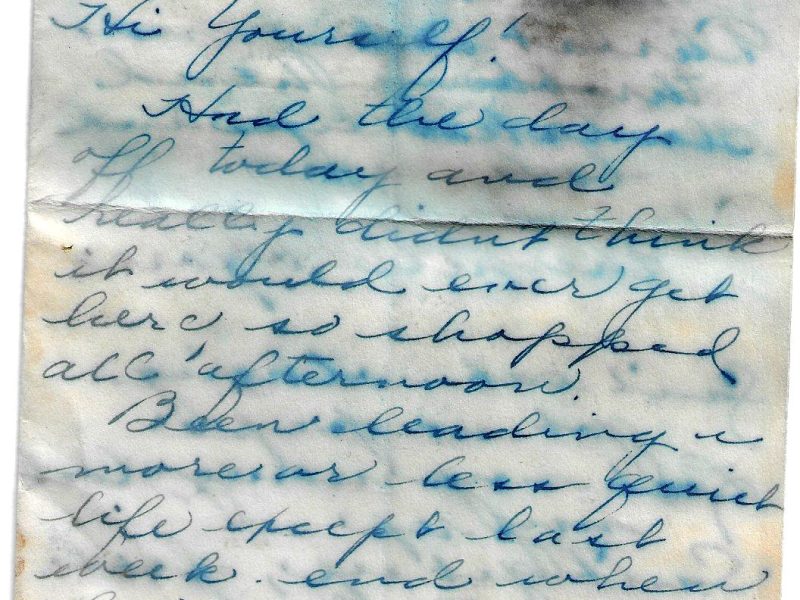 Hi Yourself!
Had the day
off today and
really didn't think
it would ever get
here so shopped
all afternoon.
Been leading a
more or less quiet
life except last
week-end when